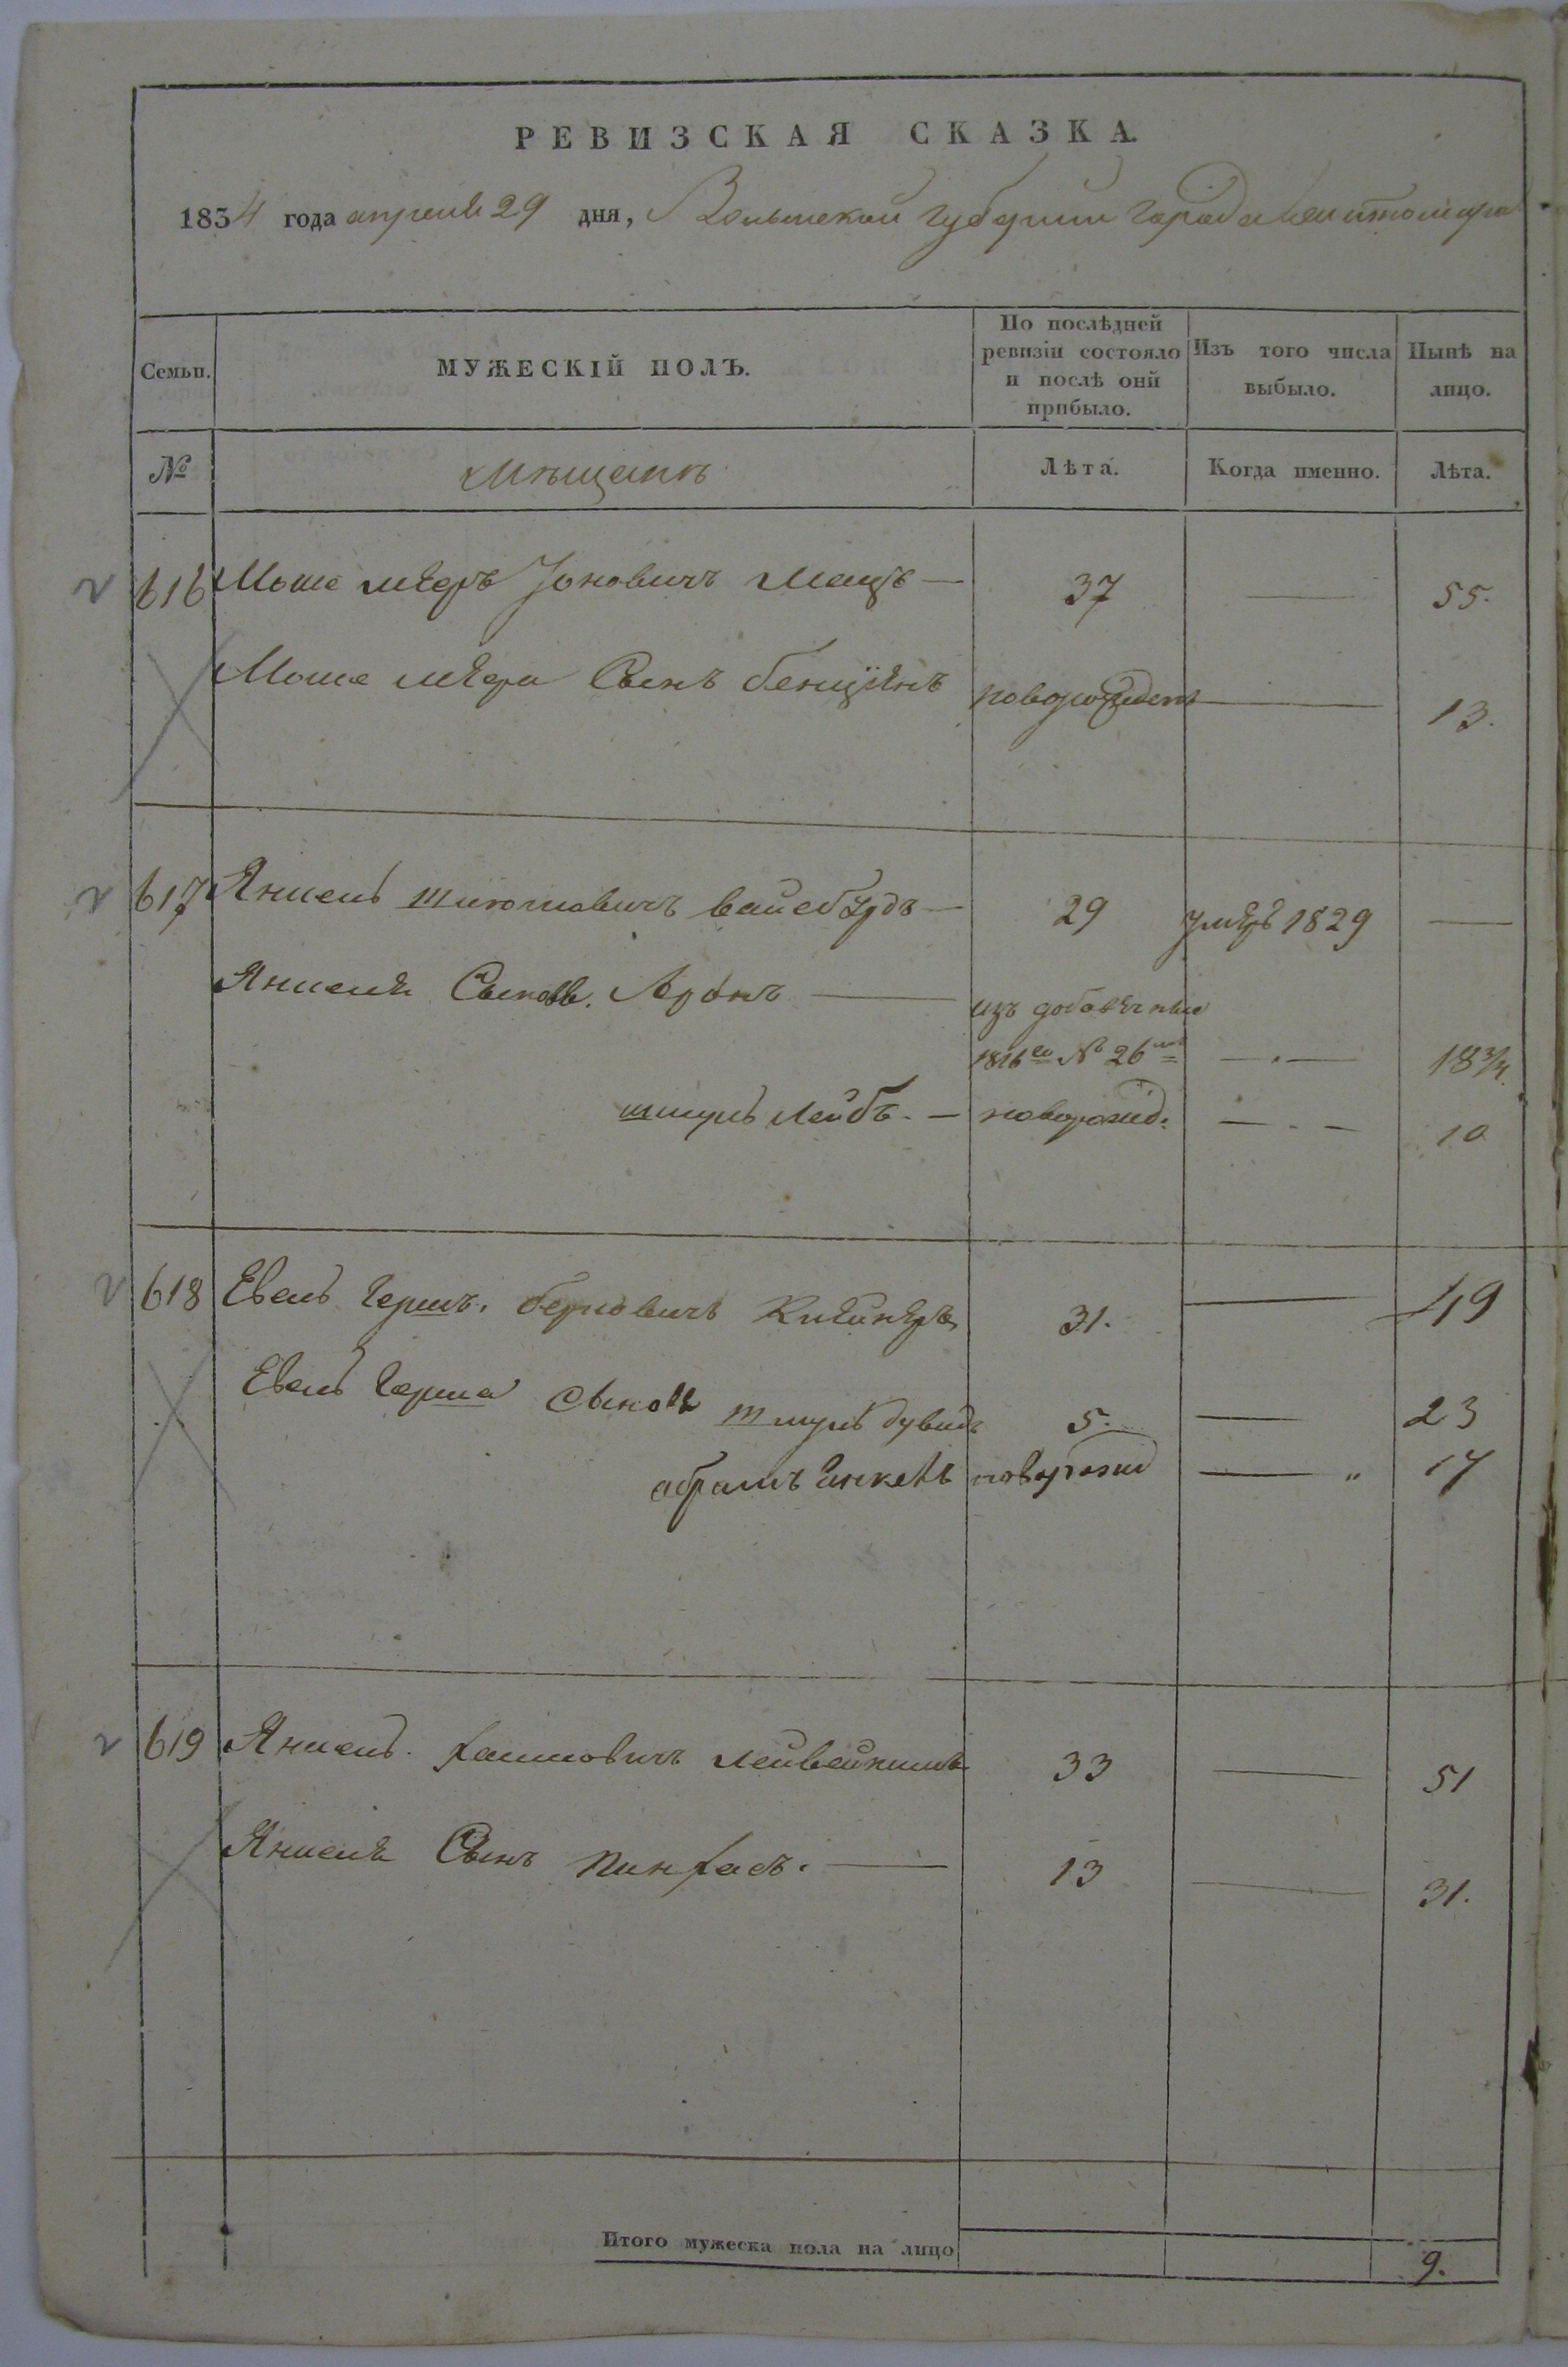 РЕВИЗСКАЯ СКАЗКА.
1834 года апреля 29 дня, Волынской губернии города Житомира
Семьи. МУЖЕСКІЙ ПОЛЪ. По послѣдней ревизіи состояло и послѣ оной прибыло. Изъ того числа выбыло. Нынѣ на лицо.
№ Мѣщанъ Лѣта. Когда именно. Лѣта.
616 Моше меръ Іоновичъ — 37 — 55.
Моше мера Сынъ бенціянъ новорожденъ — 13.
617 Янкель вайсбурдъ — 29 умеръ 1829 —
Сыновя. Аронъ — изъ добавочныхъ
1816го № 26 — . — 18 3/4.
шмуль Лейбъ. — новорожд. — . — 10
618 Евель Гершъ. берковичъ 31. — 49
Евель Герша сыновя шмуль дувидъ 5. — 23
абрамъ новорожд — „ 17
619 Хаимовичъ 33 — 51
Сынъ пинхасъ. — 13 — 31.
Итого мужеска пола на лицо 9.